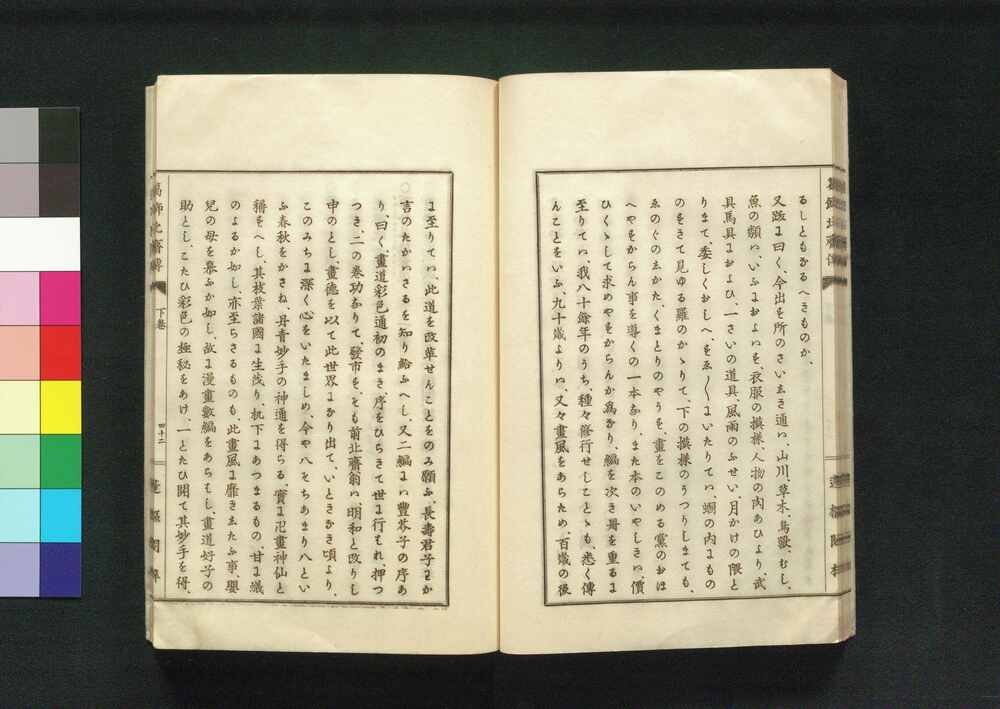 るしともなるへきものか、
又跋に曰く、今出を所のさいゑき通ハ、山川、草木、鳥獣、むし、
魚の類ハ、いふにおよハを、衣服の摸様、人物の肉あひより、武
具馬具におよひ、一さいの道具、風雨のふせい、月かけの隈と
りまて、委しくおしへ、をゑ〳〵にいたりてハ、蚵の内にもの
のをきて見ゆる羅のかゝりて、下の摸様のうつりしまても、
ゑのくのゑかた、くまとりのやうを、畫をこのめる黨のおほ
へやをからん事を導くの一本なり、また本のいやしきハ、價
ひくゝして求めやをからんか為なり、編を次き冊を重るに
至りてハ、我八十餘年のうち、種々修行せしことゝも、悉く傳
んことをいふ、九十歳よりハ、又々畫風をあらため、百歳の後
に至りてハ、此道を改革せんことをのみ願ふ、長壽君子わか
言のたかハさるを知り給ふへし、又二編にハ豐芥子の序あ
り、曰く、畫道彩色通初のまき、序をひらきて世に行もれ、押つ
つき、二の巻功なりて、發市を、そも前北齋翁ハ、明和と改りし
申のとし、畫德を以て此世界になり出て、いときなき頃より、
このみちに深く心をいたましめ、今や八そちあまり八とい
ふ春秋をかさね、丹青妙手の神通を得らる、實に卍畫神仙と
稱をへし、其枝葉諸國に生茂り、机下にあつまるもの、甘に蟻
のよるか如し、亦至らさるものも、此畫風に靡きゑたふ事、嬰
兒の母を慕ふか如し、故に漫畫數編をあらもし、畫道好子の
助とし、こたひ彩色の極秘をあけ、一とたひ開て其妙手を得、
下巻
四十二